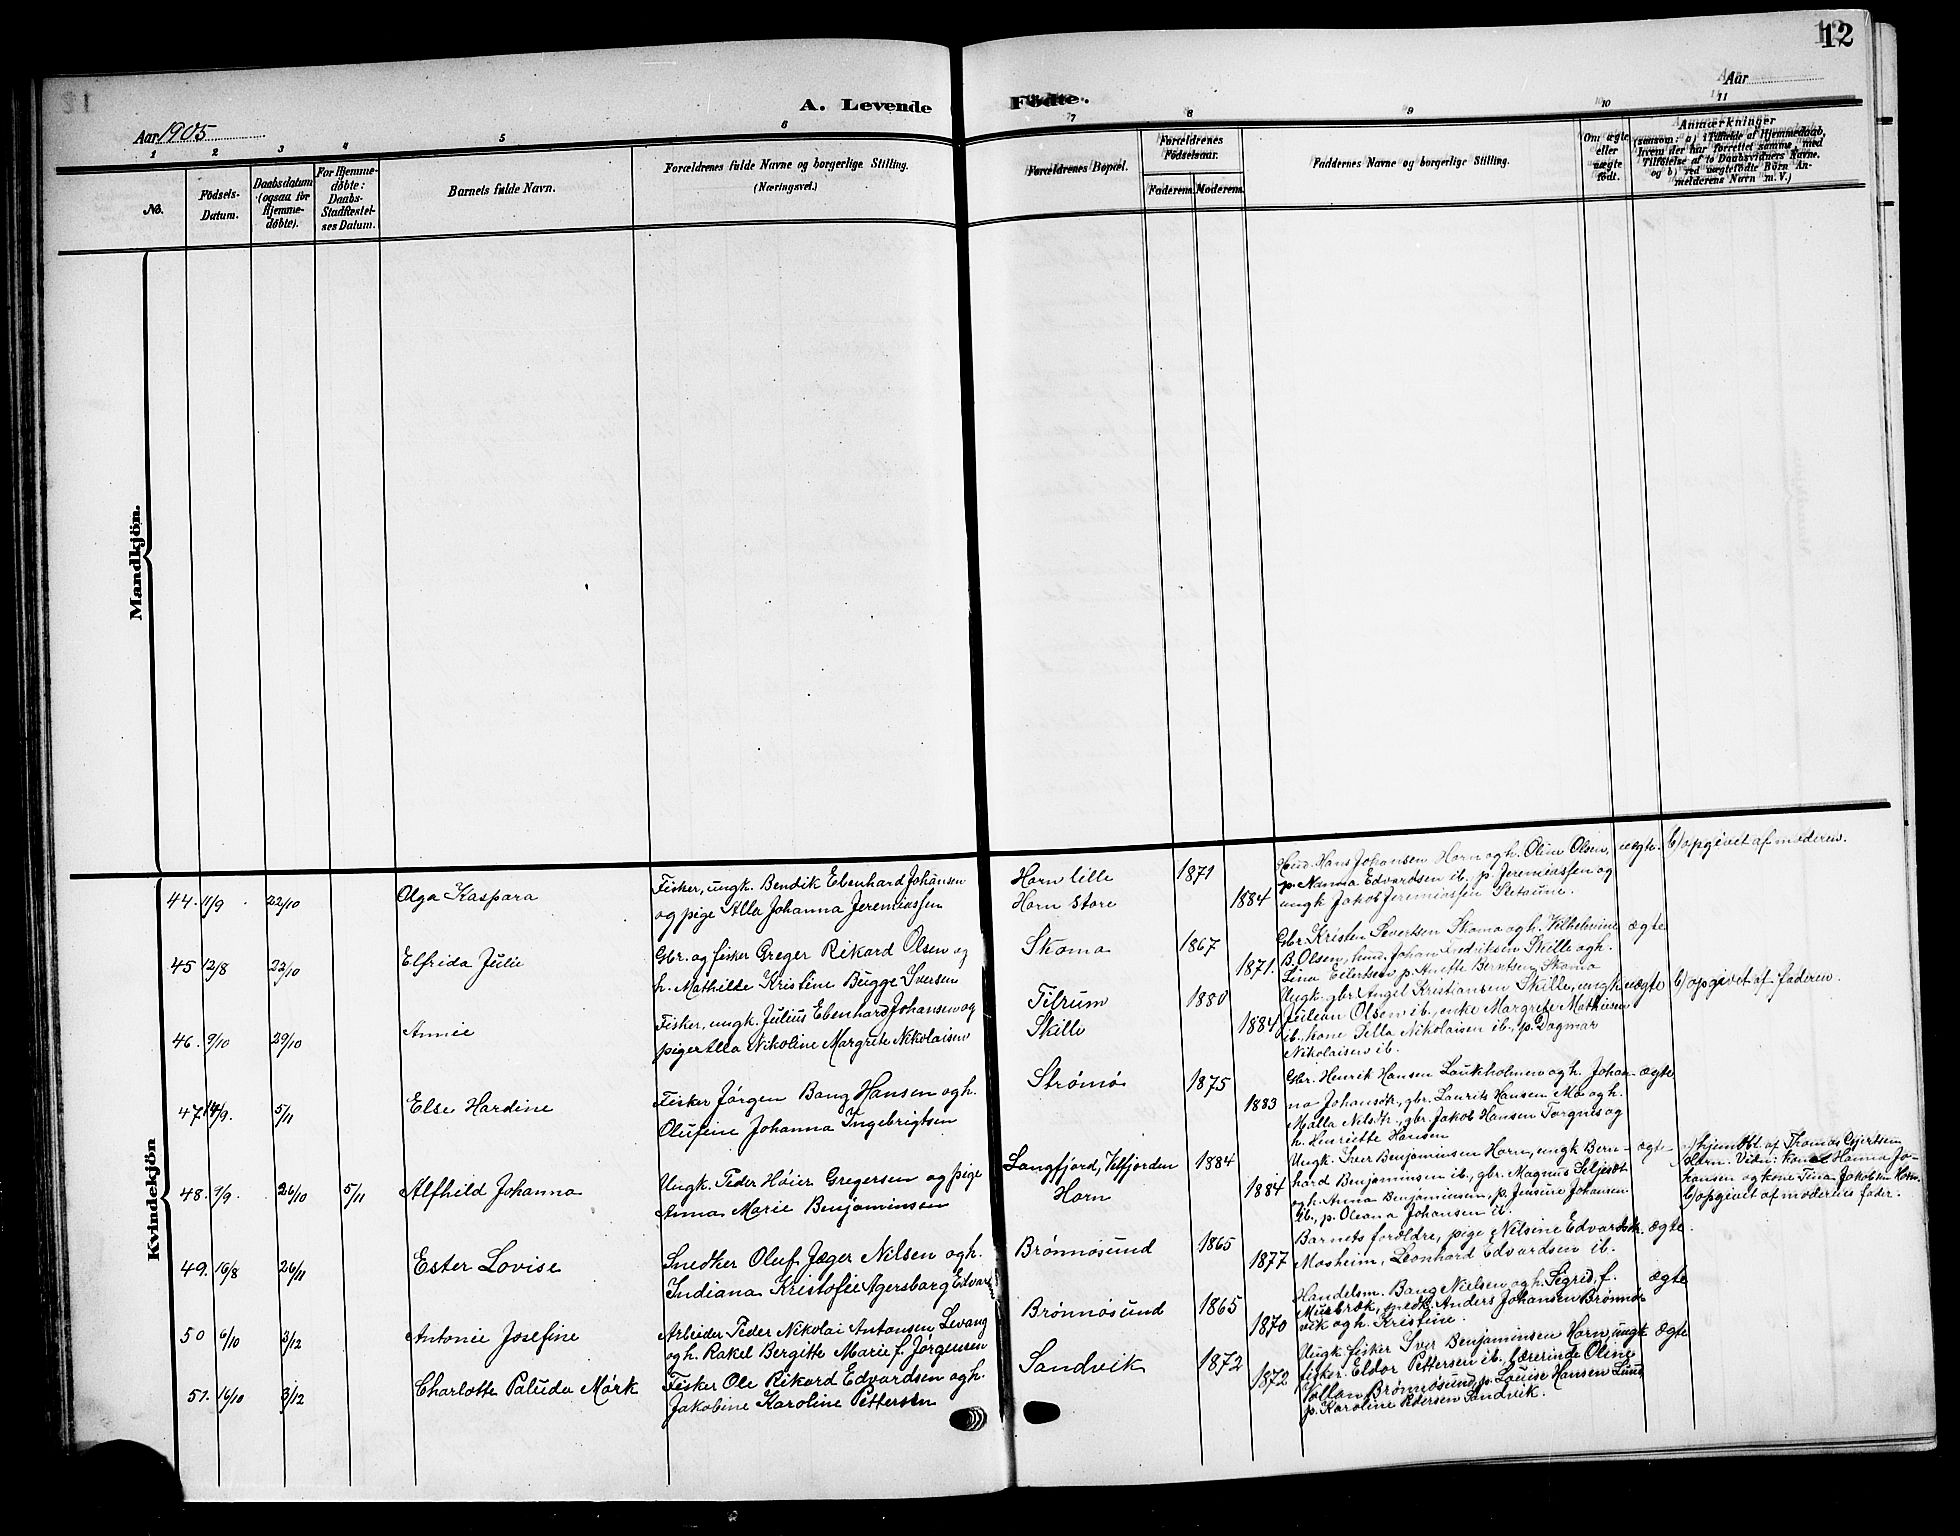 12
A. Levende Födte.
Aar 1905
Aar
1 2 3 4 5 6 7 8 9 10 11
No.
Födsels-Datum.
Daabsdatum (ogsaa for Hjemmedøbte).
For Hjemmedøbte: Daabs-Stadfæstelses Datum.
Barnets fulde Navn.
Forældrenes fulde Navne og borgerlige Stilling. (Næringsvei.)
Forældrenes Bopæl.
Forældrenes Födselsaar.
Faderens. Moderens.
Faddernes Navne og borgerlige Stilling.
Om ægte eller uægte födt.
Anmærkninger
(saasom: a) i Tilfælde af Hjemmedaab, hvem der har forrettet samme, med Tilföielse af to Daabsvidners Navne. og b) ved uægtefödte Börn Anmelderens Navn m. V.)
Mandkjön.
Kvindekjön
44. 11/9 22/10 Olga Kaspara
Fisker, ungk. Bendik Ebenhard Johansen
og pige Alla Johanna Jeremiassen
Horn lille
Horn store
1871
1884
Hmd. Hans Johansen Horn og h. Oline Olsen,
p. Nanna Edvardsen ib., p. Jeremiassen og
ungk. Jakob Jeremiassen
uægte. b) opgivet af moderen.
45 12/8 22/10 Elfrida Julie
Gbr. og fisker Greger Rikard Olsen og
h. Mathilde Kristine Bugge Iversen
Skomo
1867
1871.
Gbr. Kristen Severtsen Skomo og h. Vilhelmine
B. Olsen, hmd. Johan Fredriksen Skille og h.
Lina Eilertsen, p. Anette Berntsen Skomo
ægte
46. 9/10 29/10 Annie
Fisker, ungk. Julius Ebenhard Johansen og
pige Alla Nikoline Margrete Nikolaisen
Tilrum
Skille
1880
1884
Ungk. gbr. Angel Kristiansen Skille, ungk.
Julian Olsen ib., enke Margrete Mathisen
ib., kone Pella Nikolaisen ib., p. Dagmar
Nikolaisen ib.
uægte b) opgivet af faderen.
47. 14/9. 5/11 Else Hardine
Fisker Jörgen Bang Hansen og h.
Olufine Johanna Ingebrigtsen
Strömö
1875
1883
Gbr. Henrik Hansen Laukholmen og h. Johan-
na Johansdt., gbr. Laurits Hansen Mo og h.
Malla Nilsdtr., gbr. Jakob Hansen Torgnes og
h. Henriette Hansen
ægte
48. 9/9. 26/10 5/11 Alfhild Johanna
Ungk. Peder Höier Gregersen og pige
Anna Marie Benjaminsen
Langfjord, Velfjorden
Horn
1884
1884
Ungk. Iver Benjaminsen Horn, ungk Bern-
hard Benjaminsen ib., gbr. Magnus
og h. Anna Benjaminsen, p. Jensine Johansen
ib., p. Oleana Johansen ib.
ægte
a) hjemdbt. af Thomas Gjertsen
Horn. Vidn: kone Hanna Jo-
hansen og kone Tina Jakobsen Horn.
b) opgivet af moderens fader.
49. 16/8 26/11 Ester Lovise
Snedker Oluf Jæger Nilsen og h.
Indiana Kristofie Agersborg Edvard
Brönnösund
1865
1877
Barnets forældre, pige Nilsine Edvardsen
Mosheim, Leonhard Edvardsen ib.
ægte.
50 6/10 3/12 Antonie Josefine
Arbeider Peder Nikolai Antonsen Levang
og h. Rakel Bergitte Marie f. Jörgensen
Brönnösund
1865
1870
Handelsm. Bang Nielsen og h. Sigrid, f.
Musbræk, snedk. Anders Johansen Brönnö-
vik og h. Kristine.
ægte
51. 16/10 3/12 Charlotte Paluda Mörk
Fisker Ole Rikard Edvardsen og h.
Jakobine Karoline Pettersen
Sandvik
1872
1872
Ungk. fisker Iver Benjaminsen Horn, ungk
fisker. Eldor Pettersen ib. lærerinde Oline
Vollan Brönnösund, p. Louise Hansen Lund
p. Karoline Pedersen Sandvik.
ægte